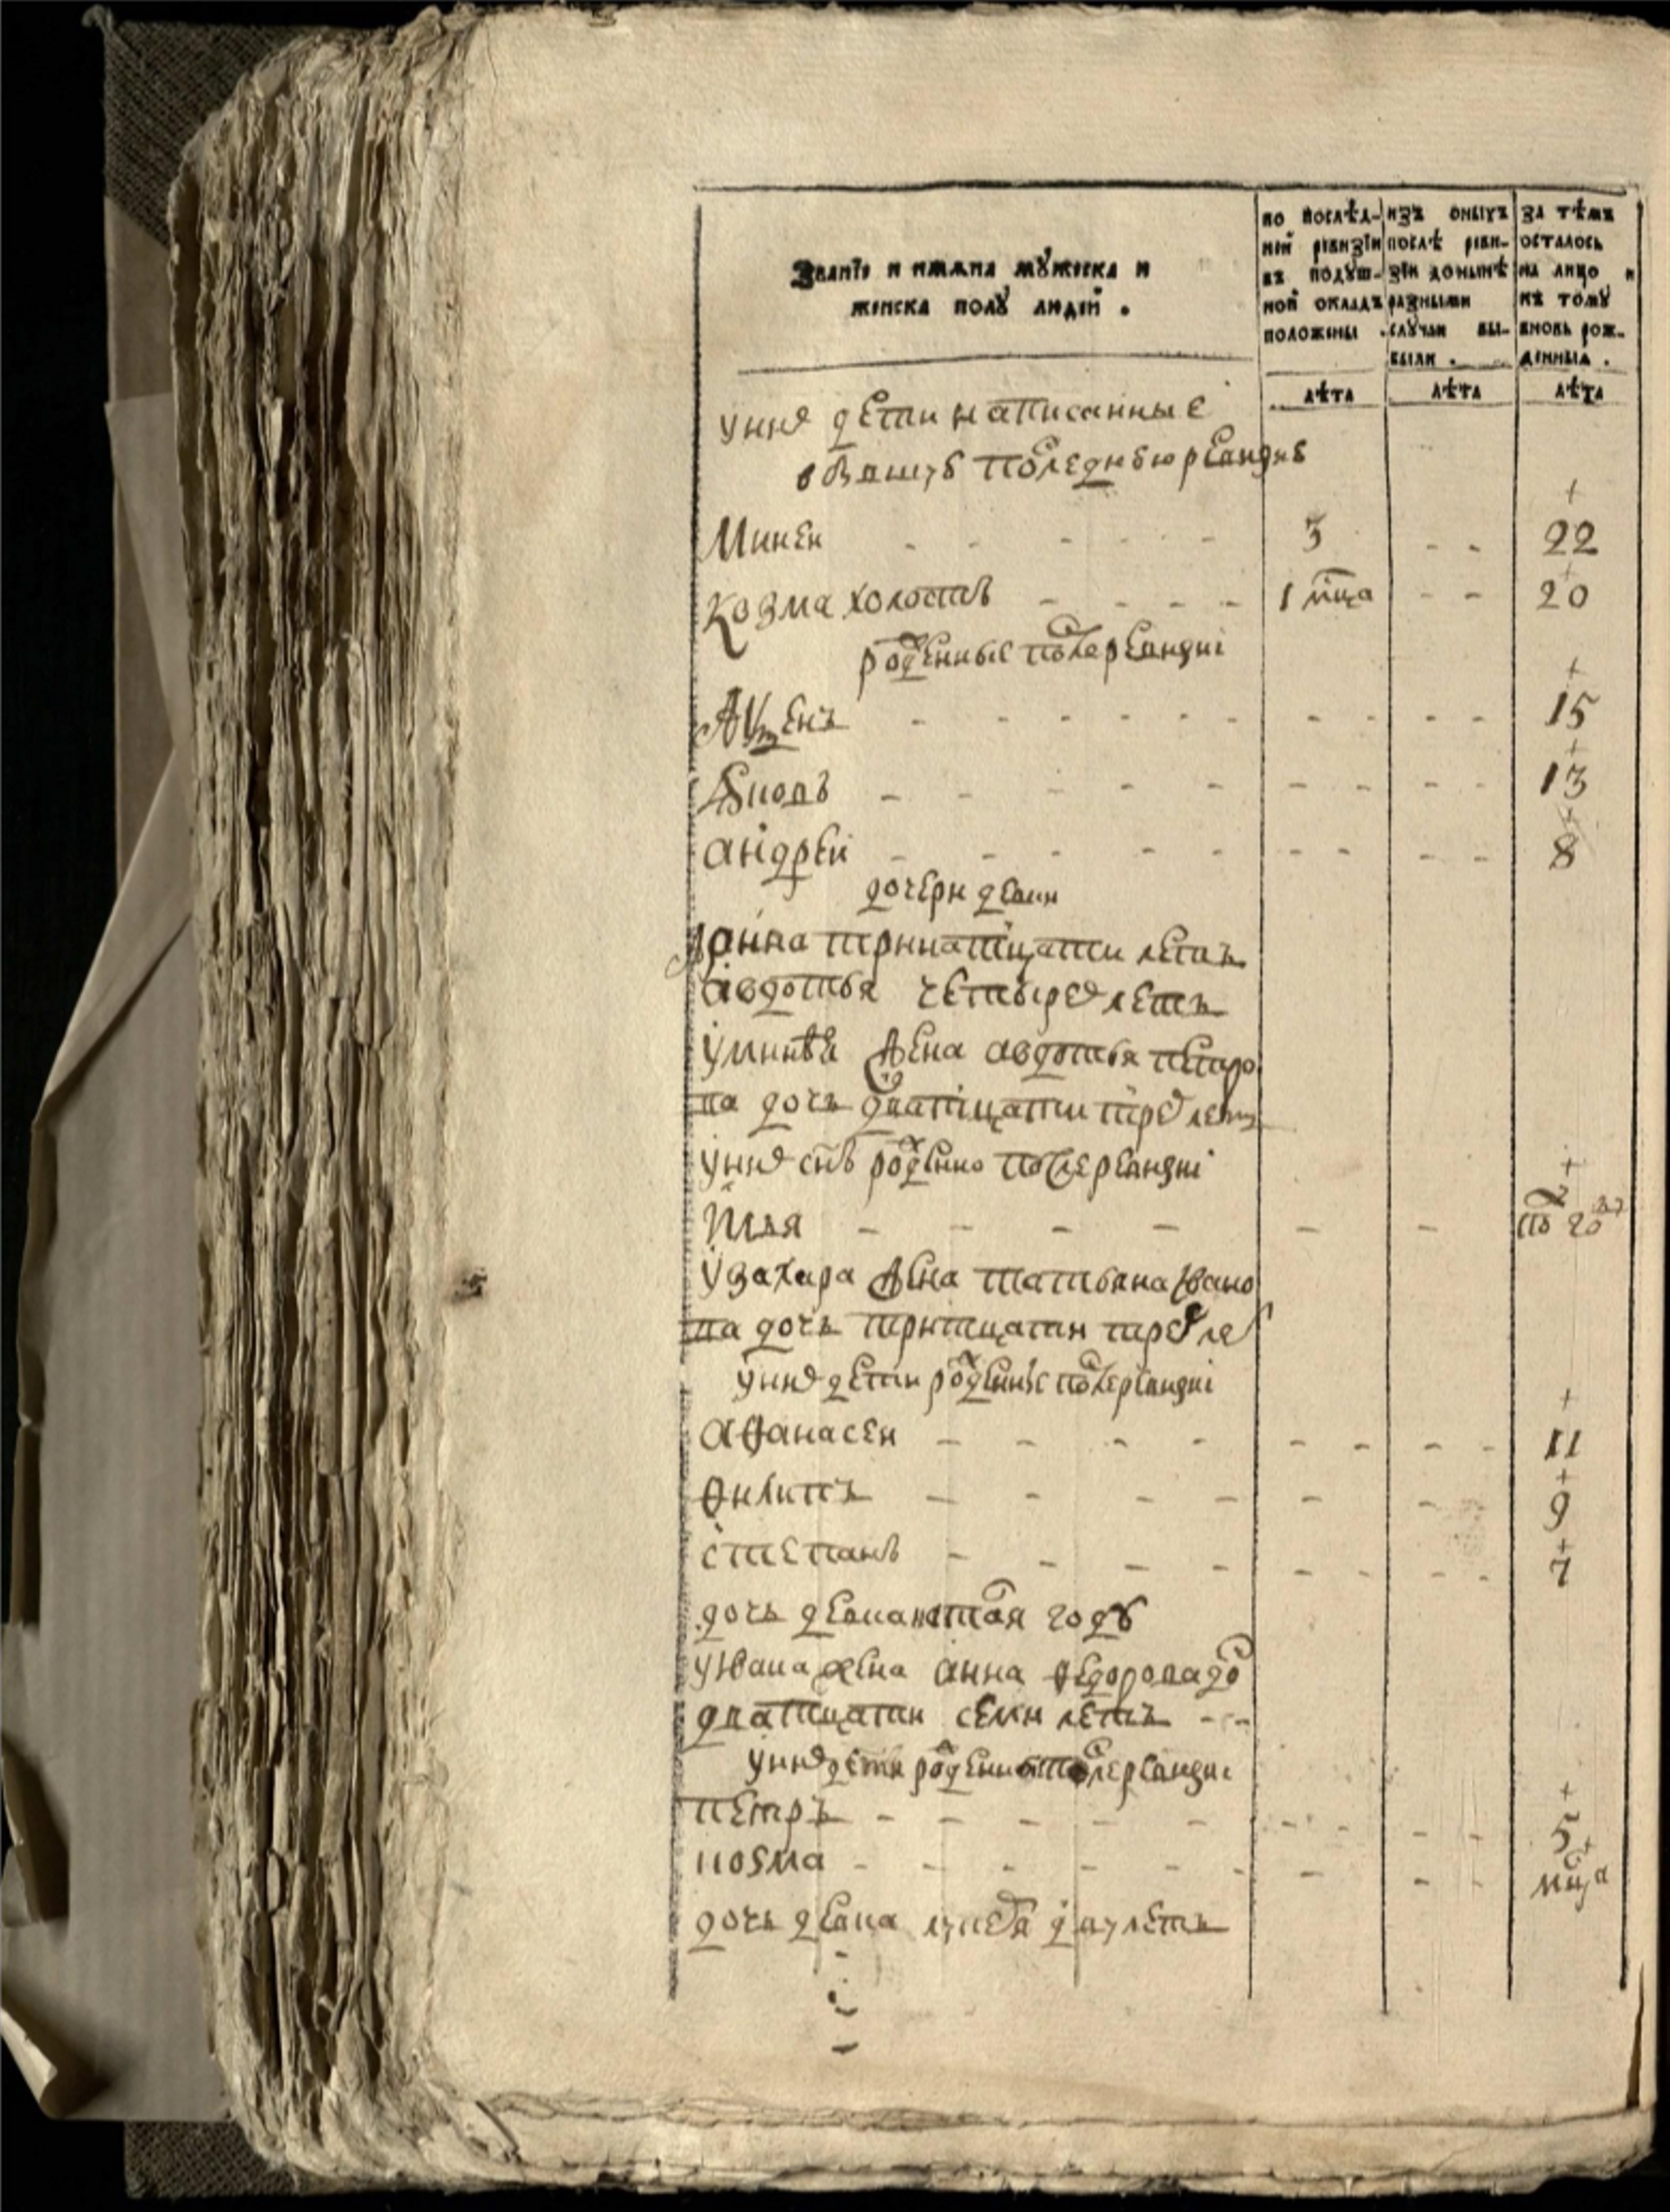 Званїе и имѧна мꙋжеска и
женска полꙋ людей .
по послѣд-
ней ревизїи
въ подꙋш-
ной окладъ
положены .
изъ оныхъ
послѣ реви-
зїи донынѣ
разными
слꙋчаи вы-
были .
за тѣмъ
осталось
на лицо и
къ томꙋ
вновь рож-
денныѧ .
лѣта
лѣта
лѣта
у них дети написанные
в бывшую последнюю ревизию
Минеи - - - - - 3 - - 22
Козма холостъ - - - - 1 мца - - 20
рожденные после ревизиi
- - - - - - - - - - 15
- - - - - - - - - 13
андреи - - - - - - - - - 8
дочери девки
анна тринатцати летъ
авдотья четырех летъ
у минея жена авдотья петро
ва дочь дватцати трех летъ
у них снъ рожденно после ревизиi
Илья - - - - - - 2 по го
у захара жена татьяна Ивано
ва дочь тритцати трех ле
у них дети рожденные после ревизиi
аѳанасеи - - - - - - - - 11
ѳилипъ - - - - - - 9
степанъ - - - - - - - - 7
дочь девка настая году
у Ивана жена анна ѳедорова до
дватцати семи летъ - -
у них дети рожденные после ревизиi
петръ - - - - - - - - - 5
козма - - - - - - - - - мца
дочь девка лукея двух летъ